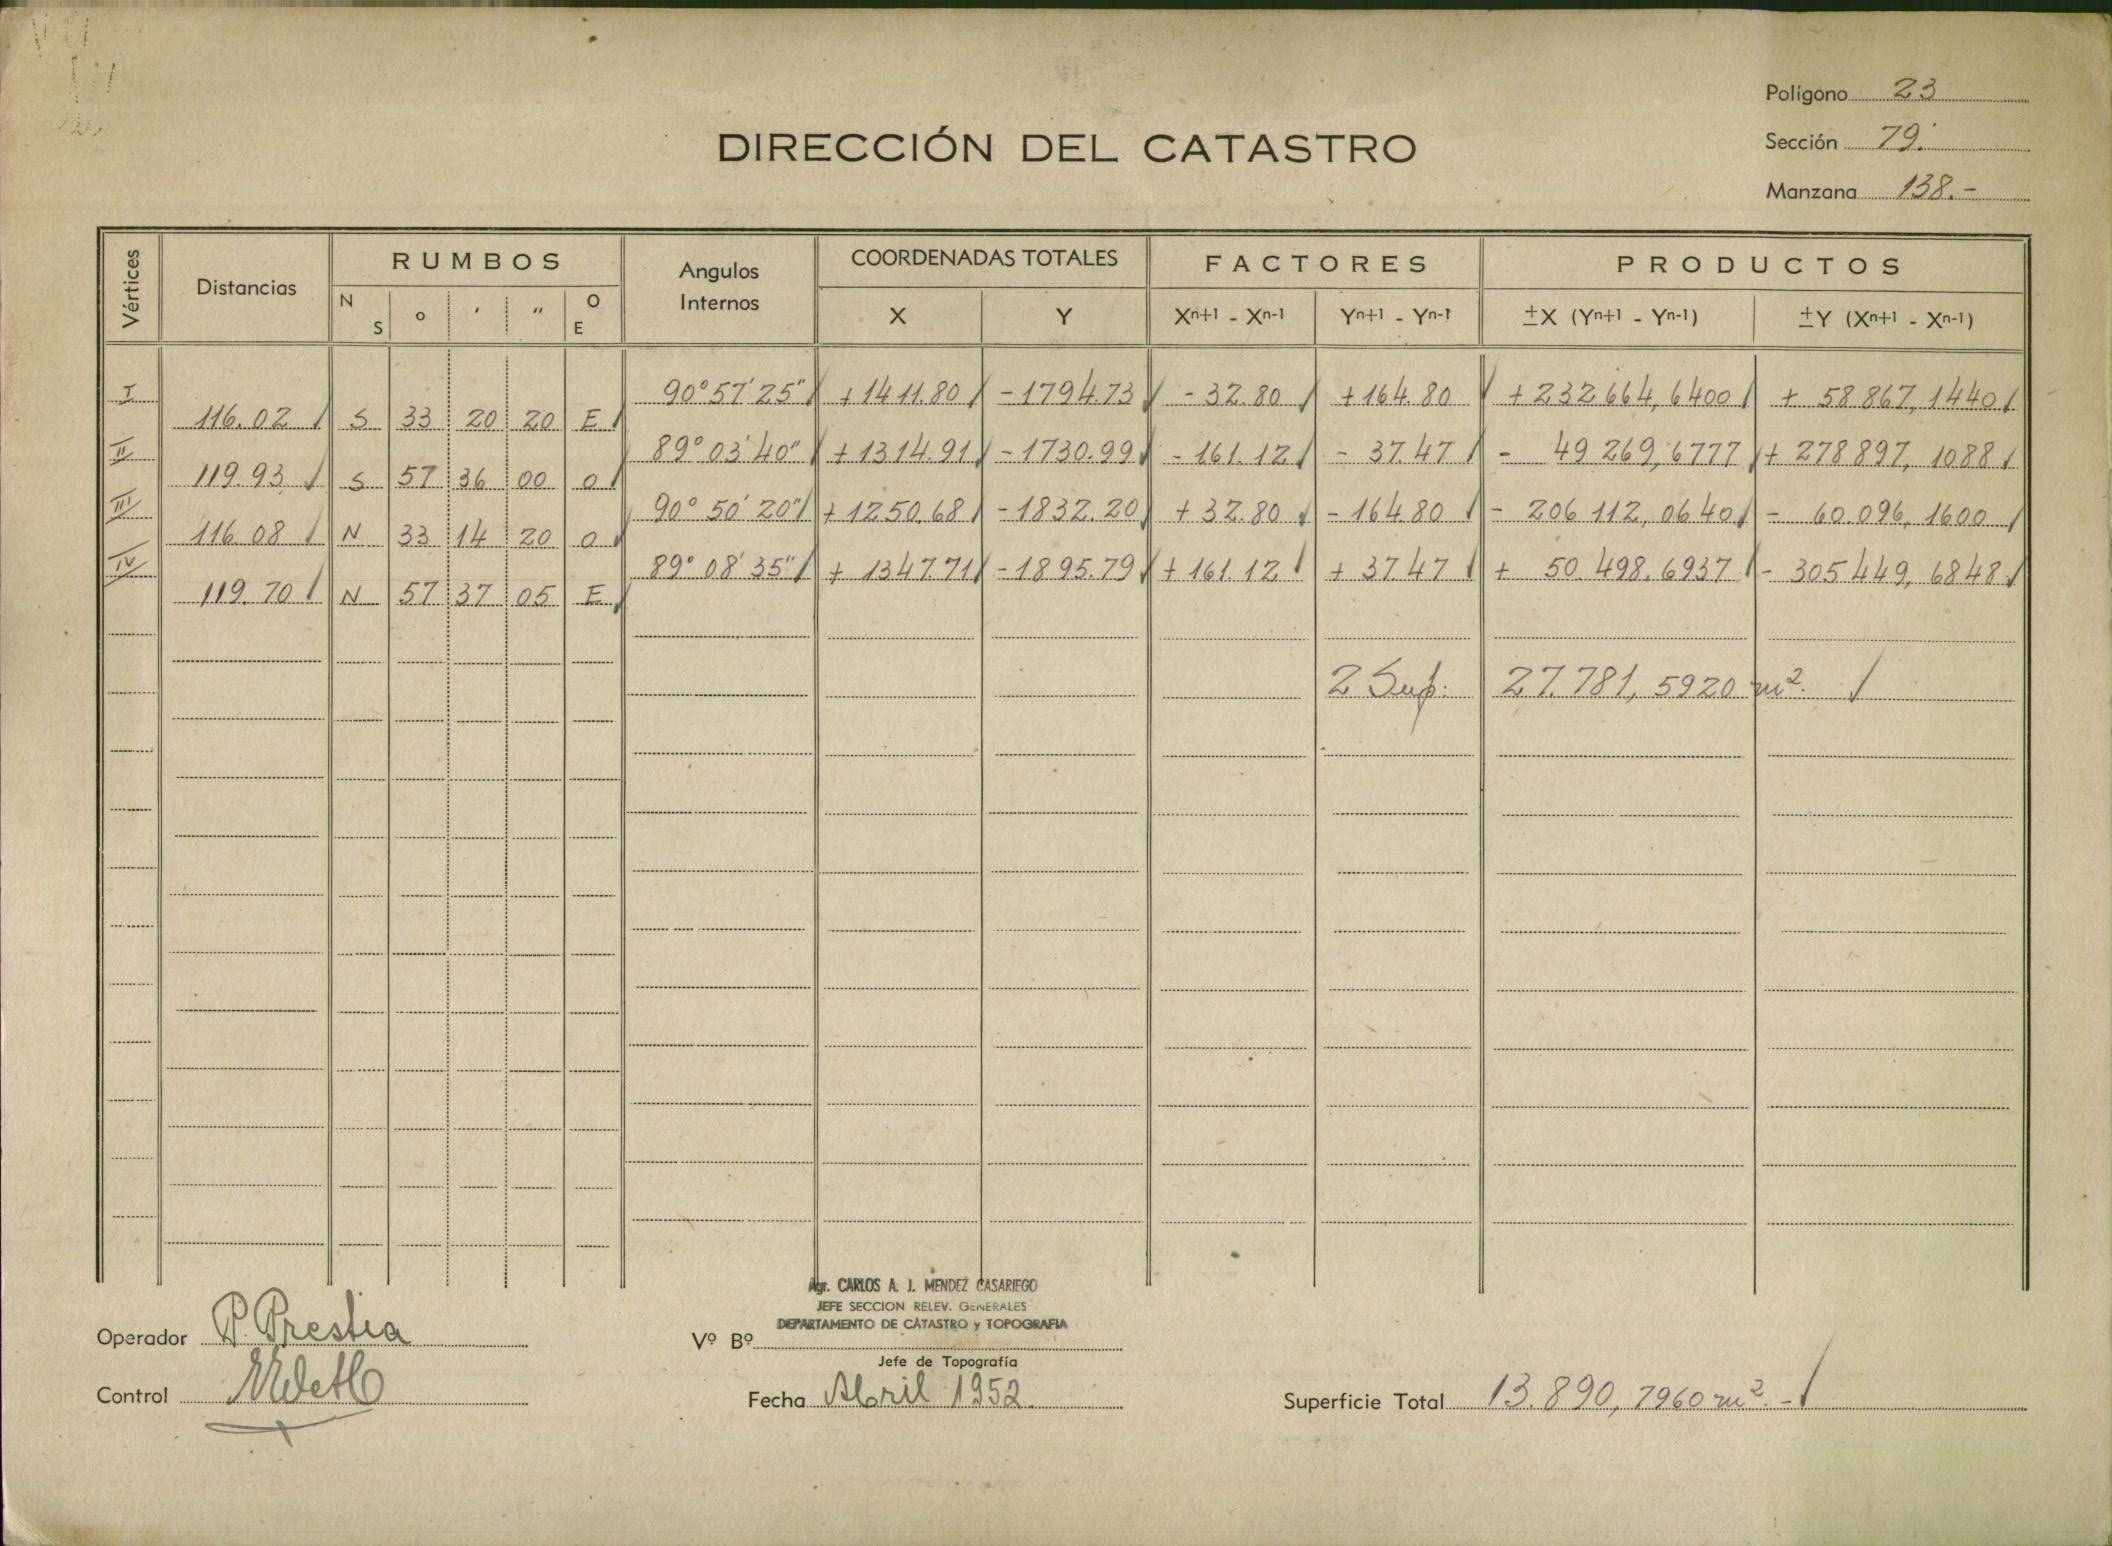 Polígono 23
DIRECCIÓN DEL CATASTRO
Sección 79.
Manzana 138.-
Vértices Distancias RUMBOS Angulos Internos COORDENADAS TOTALES FACTORES PRODUCTOS
N S o ′ ″ O E X Y Xn+1 - Xn-1 Yn+1 - Yn-1 ±X (Yn+1 - Yn-1) ±Y (Xn+1 - Xn-1)
I 90°57'25" +1411.80 -1794.73 -32.80 +164.80 +232664,6400 + 58.867,1440
116.02 S 33 20 20 E
II 89°03'40" +1314.91 -1730.99 -161.12 - 37.47 - 49 269,6777 + 278897,1088
119.93 S 57 36 00 O
III 90°50'20" +1250.68 -1832.20 +32.80 -164.80 - 206 112,0640 - 60096,1600
116.08 N 33 14 20 O
IV 89°08'35" + 1347.71 -1895.79 +161.12 + 37.47 + 50.498.6937 - 305449,6848
119.70 N 57 37 05 E
2 Sup. 27.781,5920 m2.
Agr. CARLOS A. J. MENDEZ CASARIEGO
JEFE SECCION RELEV. GENERALES
DEPARTAMENTO DE CATASTRO y TOPOGRAFIA
Operador P. Prestia
Vº Bº
Jefe de Topografía
Control
Fecha Abril 1952.
Superficie Total 13.890,7960 m2.-